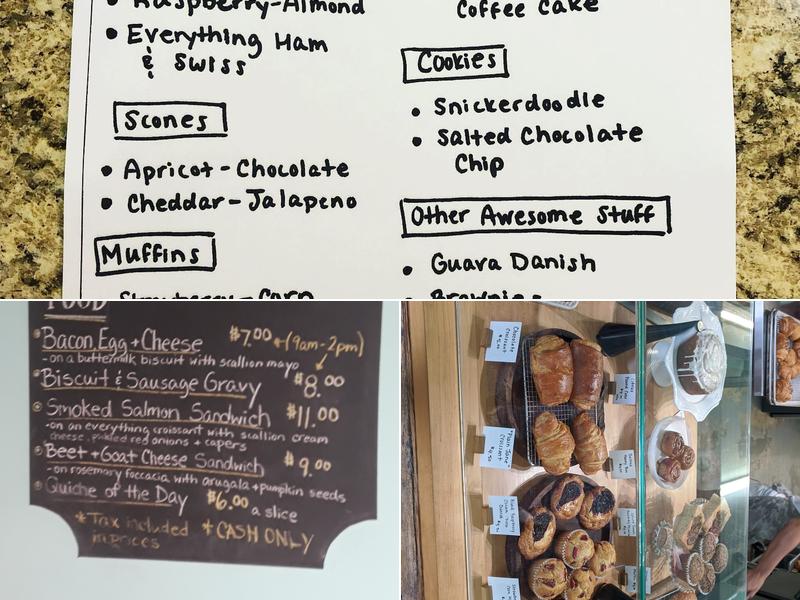 Raspberry-Almond
• Everything Ham
& Swiss
Scones
• Apricot-Chocolate
• Cheddar-Jalapeno
Muffins
Strawberry-Corn
Coffee Cake
Cookies
• Snickerdoodle
• Salted Chocolate
Chip
Other Awesome Stuff
• Guava Danish
Brownies
FOOD
Bacon, Egg + Cheese $7.00 (9am-2pm)
-on a buttermilk biscuit with scallion mayo
Biscuit & Sausage Gravy $8.00
Smoked Salmon Sandwich $11.00
-on an everything croissant with scallion cream
cheese, pickled red onions + capers
Beet + Goat Cheese Sandwich $9.00
-on rosemary foccacia with arugala + pumpkin seeds
Quiche of the Day $6.00 a slice
*Tax included
in prices
*CASH ONLY
Chocolate
Croissant
"Plain Jane"
Croissant
$4.50